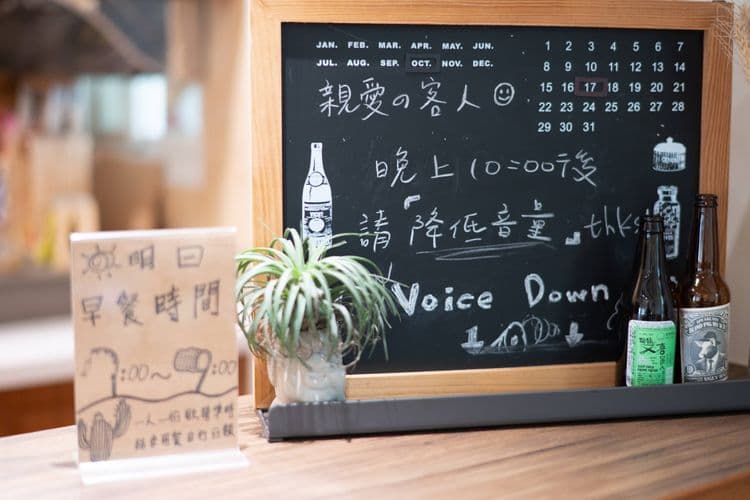 JAN. FEB. MAR. APR. MAY. JUN.
JUL. AUG. SEP. OCT. NOV. DEC.
1 2 3 4 5 6 7
8 9 10 11 12 13 14
15 16 17 18 19 20 21
22 23 24 25 26 27 28
29 30 31
親愛の客人
晚上10:00後
請「降低音量」thks
Voice Down
明日
早餐時間
7:00~9:00